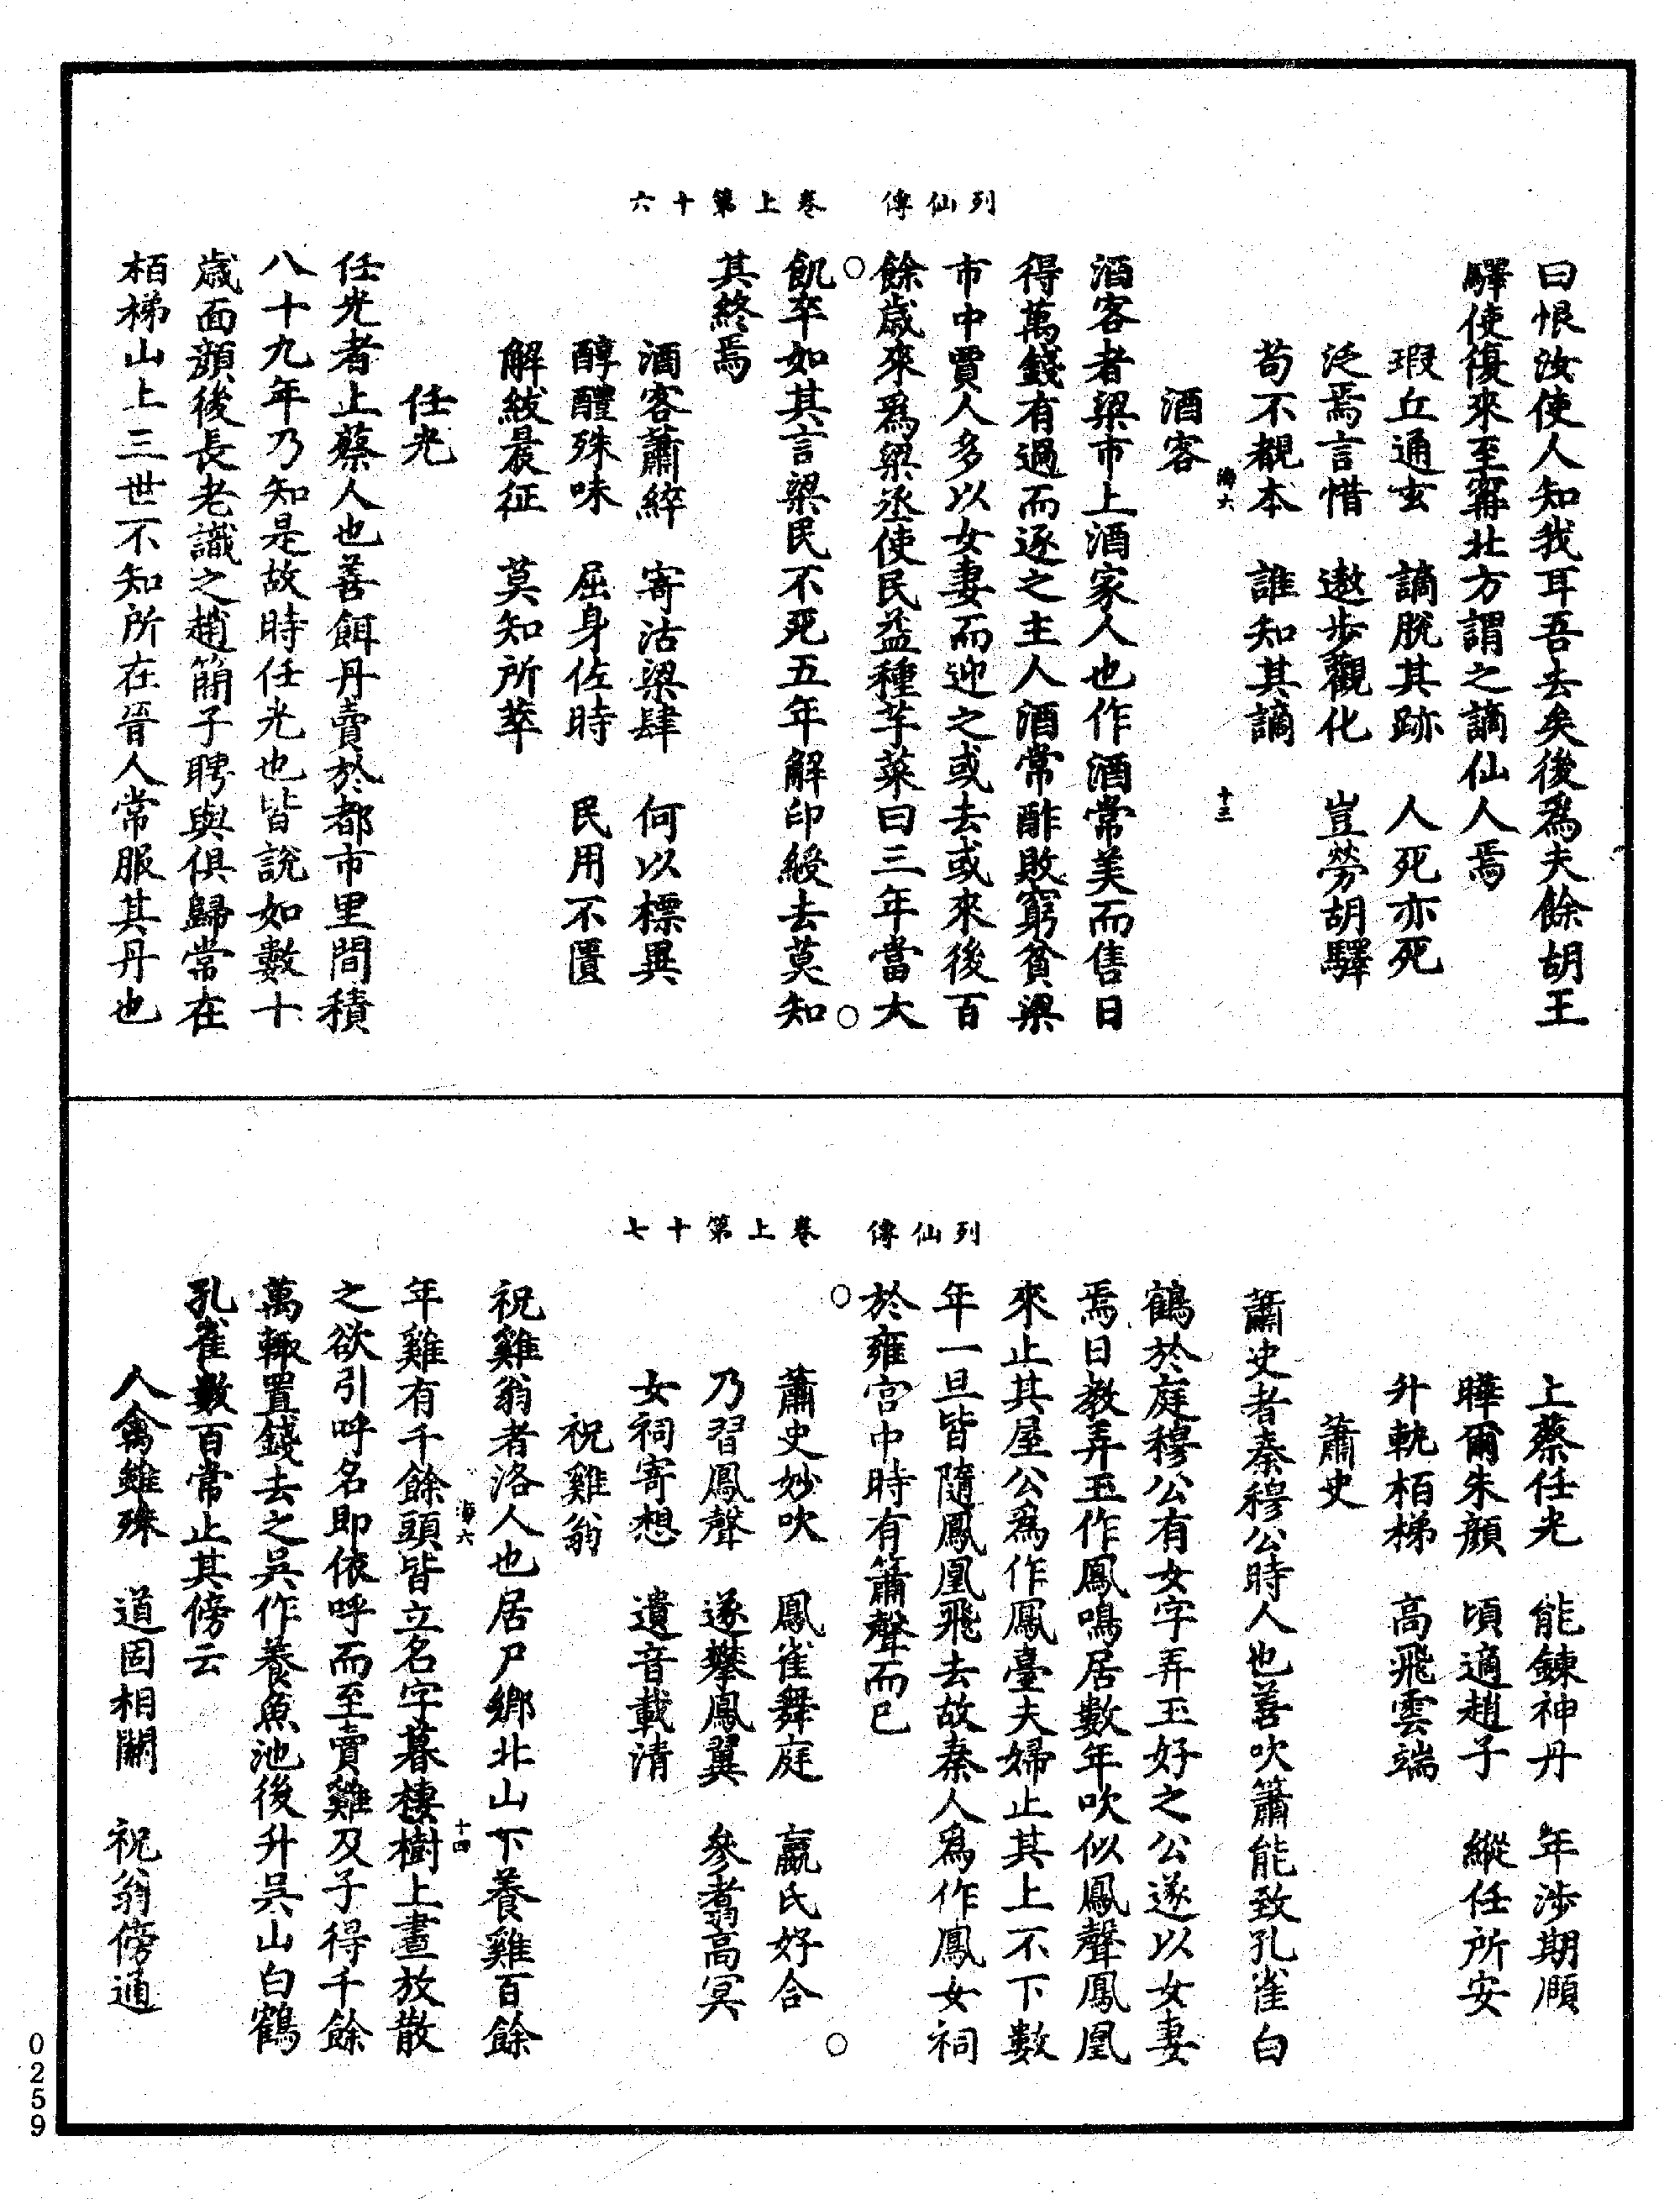 列仙傳　卷上第十六
曰恨汝使人知我耳吾去矣後爲夫餘胡王
驛使復來至甯北方謂之謫仙人焉
瑕丘通玄　謫脫其跡　人死亦死
泛焉言惜　遨步觀化　豈勞胡驛
苟不覩本　誰知其謫
海六　十三
酒客
酒客者梁市上酒家人也作酒常美而售日
得萬錢有過而逐之主人酒常酢敗窮貧梁
市中賈人多以女妻而迎之或去或來後百
餘歲來爲梁丞使民益種芋菜曰三年當大
飢卒如其言梁民不死五年解印綬去莫知
其終焉
酒客蕭綷　寄沽梁肆　何以標異
醇醴殊味　屈身佐時　民用不匱
解紱晨征　莫知所萃
任光
任光者上蔡人也善餌丹賣於都市里間積
八十九年乃知是故時任光也皆說如數十
歲面顏後長老識之趙簡子聘與俱歸常在
栢梯山上三世不知所在晉人常服其丹也
列仙傳　卷上第十七
上蔡任光　能鍊神丹　年涉期頤
曄爾朱顏　頃適趙子　縱任所安
升軌栢梯　高飛雲端
蕭史
蕭史者秦穆公時人也善吹簫能致孔雀白
鶴於庭穆公有女字弄玉好之公遂以女妻
焉日教弄玉作鳳鳴居數年吹似鳳聲鳳凰
來止其屋公爲作鳳臺夫婦止其上不下數
年一旦皆隨鳳凰飛去故秦人爲作鳳女祠
於雍宮中時有簫聲而已
蕭史妙吹　鳳雀舞庭　嬴氏好合
乃習鳳聲　遂攀鳳翼　參翥高冥
女祠寄想　遺音載清
祝雞翁
祝雞翁者洛人也居尸鄉北山下養雞百餘
海六　十四
年雞有千餘頭皆立名字暮棲樹上晝放散
之欲引呼名即依呼而至賣雞及子得千餘
萬輙置錢去之吳作養魚池後升吳山白鶴
孔雀數百常止其傍云
人禽雖殊　道固相關　祝翁傍通
0259